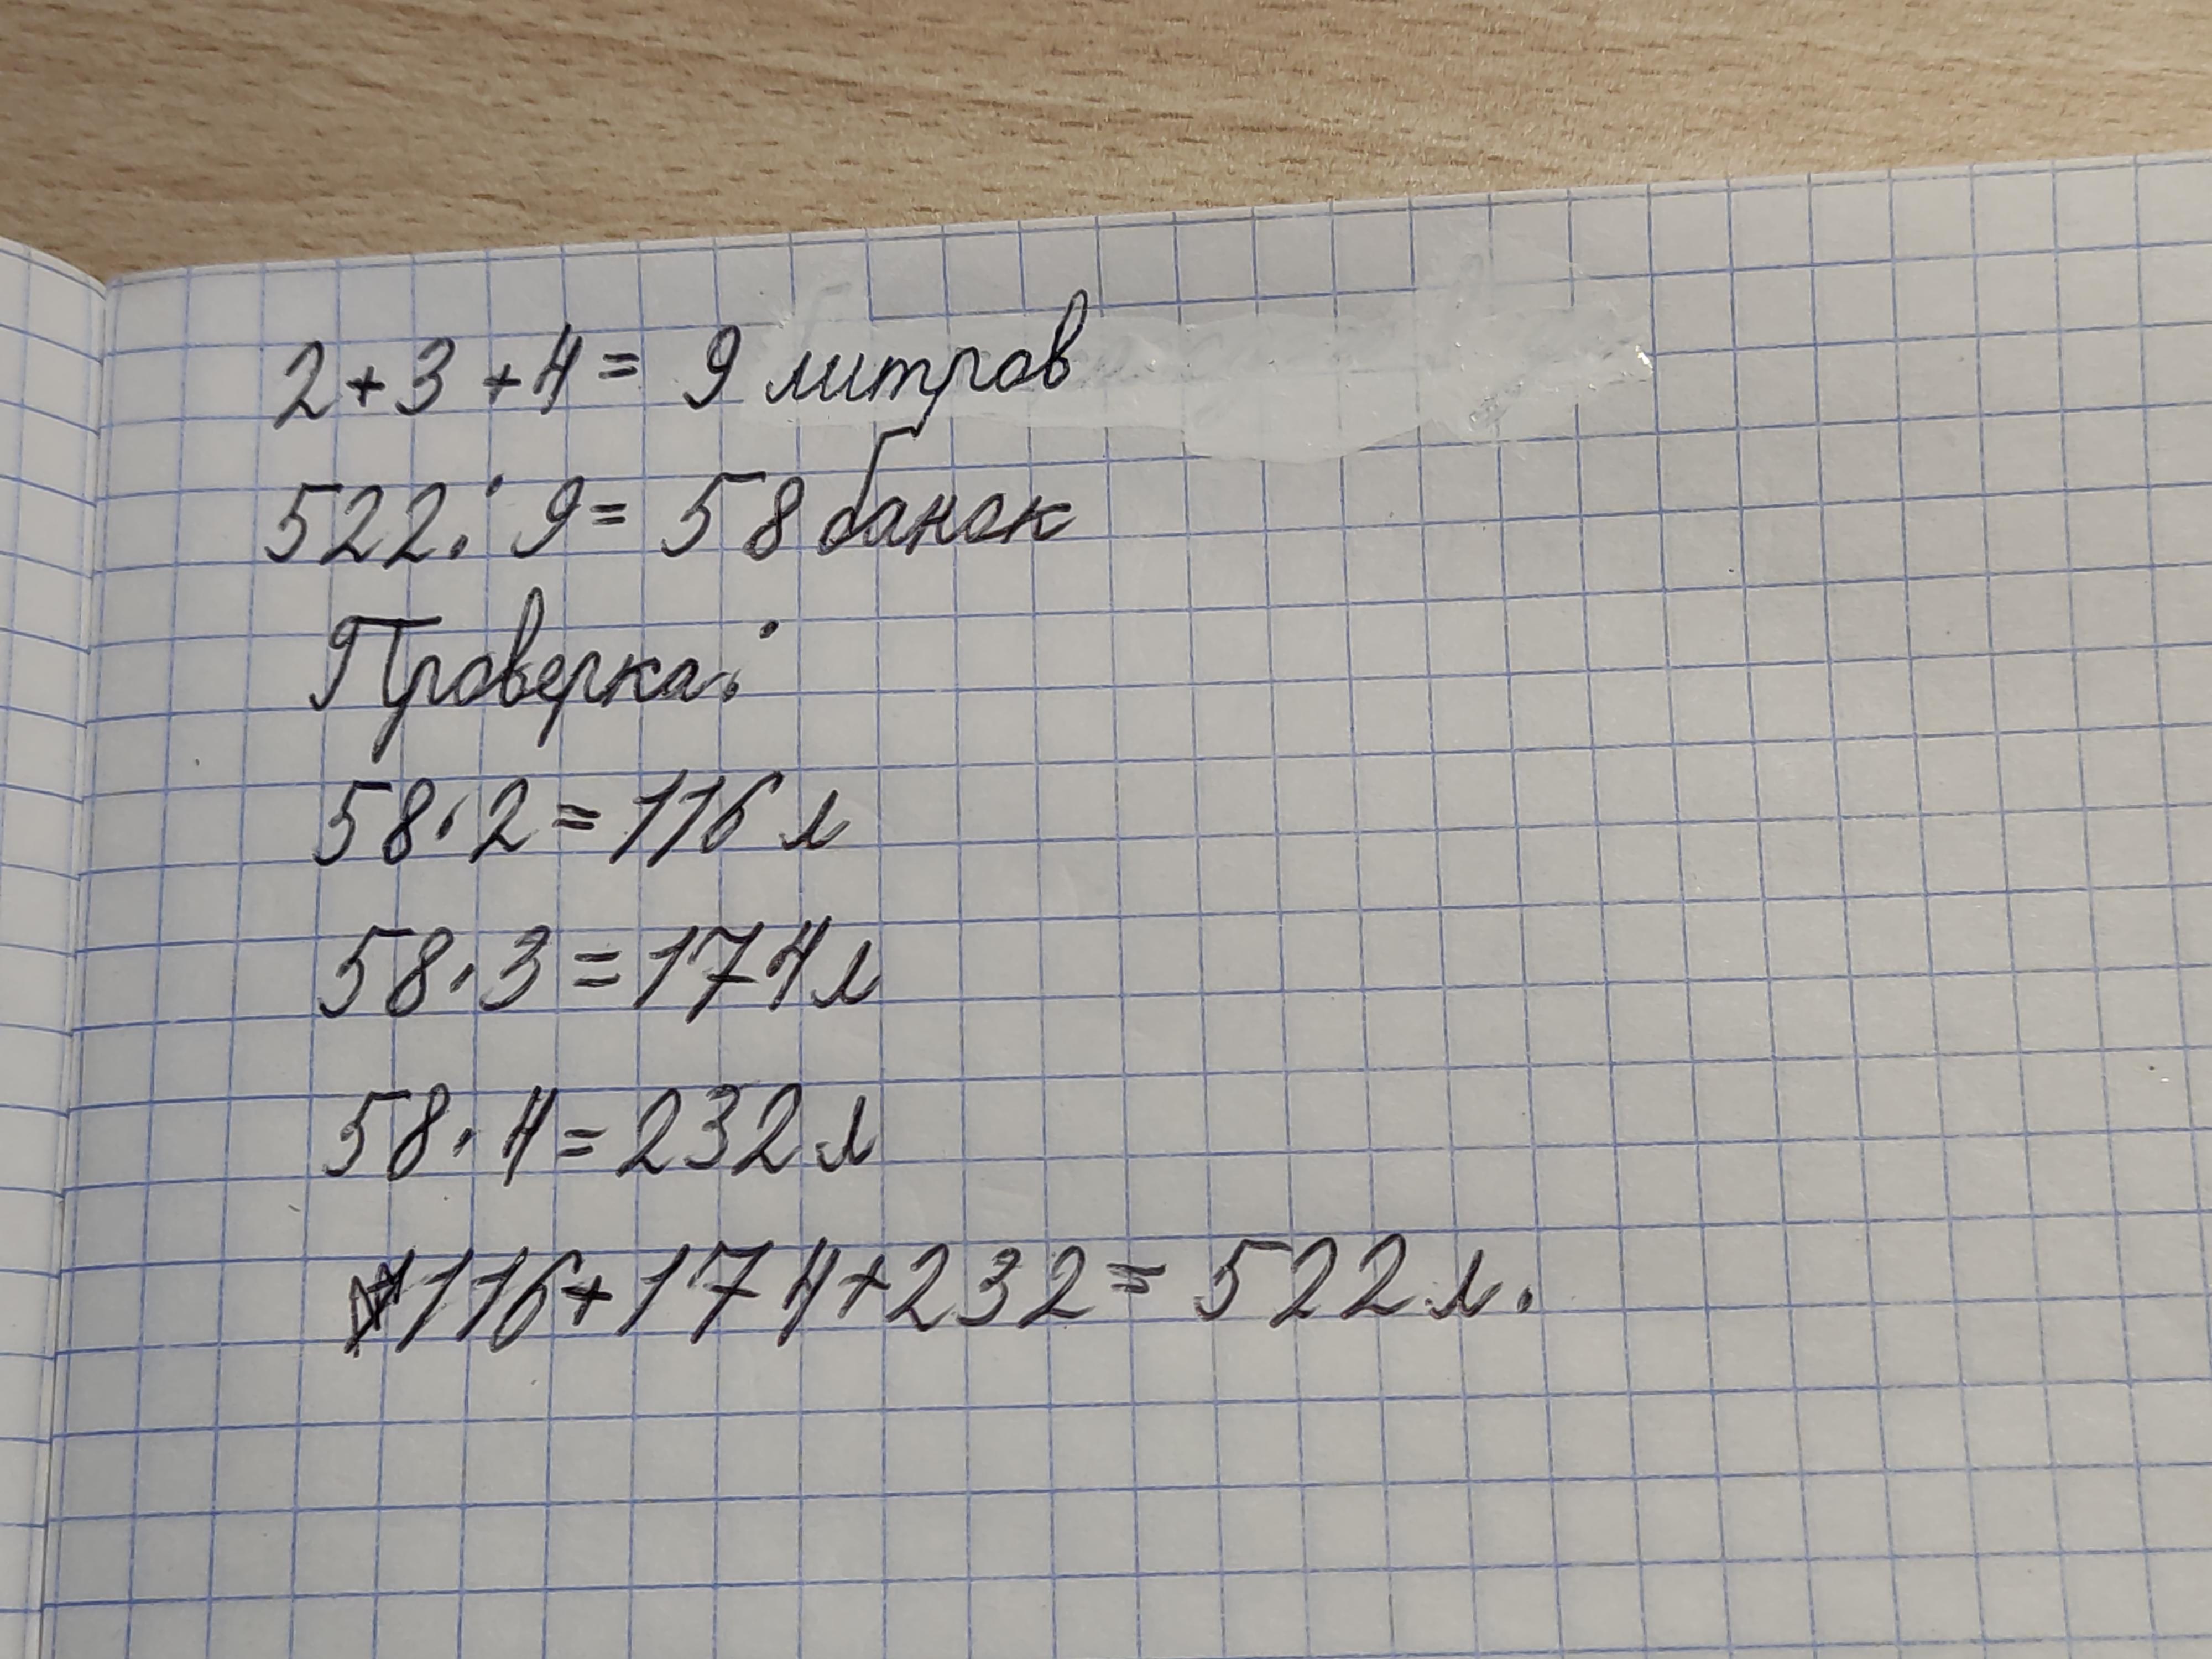 2+3+4= 9 литров
522:9= 58 банок
Проверка:
58·2=116 л
58·3=174 л
58·4=232 л
116+174+232=522 л.